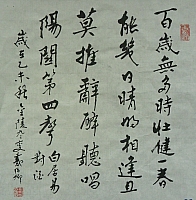 百歲無多時壯健一春
能幾日晴明相逢且
莫推辭醉聽唱
陽關第四聲
白居易
對酒
歲在乙未秋金陵